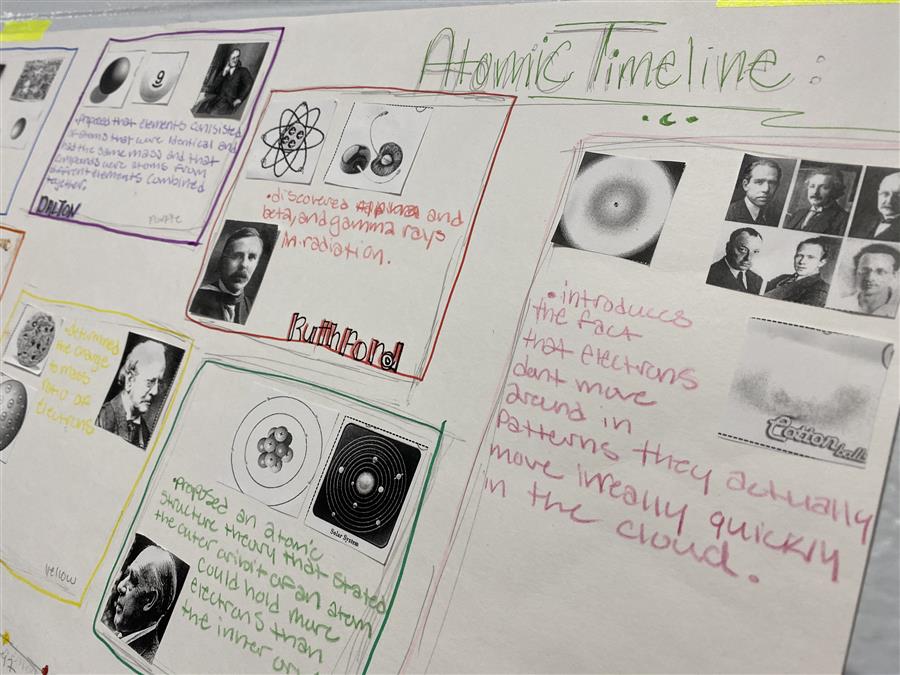 Atomic Timeline:
9
•Proposed that elements consisted
of atoms that were identical and
had the same mass and that
compounds were atoms from
different elements combined
together.
DALTON
PURPLE
•discovered and
beta, and gamma rays
in radiation.
RuthFord
•determined
the charge
to mass
ratio of
electrons
yellow
•proposed an atomic
structure theory that stated
the outer oribit of an atom
could hold more
electrons than
the inner
Solar System
•introduces
the fact
that electrons
dont move
around in
patterns they actually
move irreally quickly
in the cloud.
Cotton balls